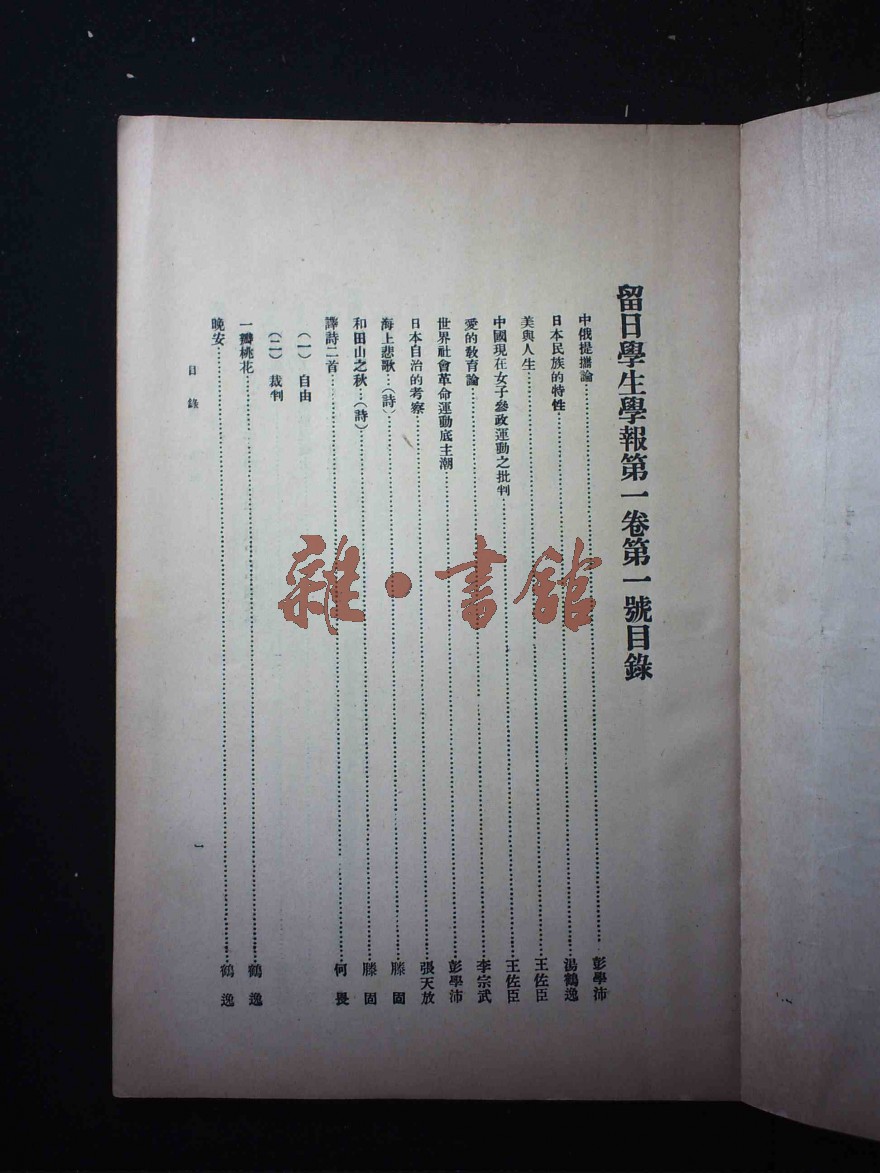 留日學生學報第一卷第一號目錄
中俄提攜論……彭學沛
日本民族的特性……湯鶴逸
美與人生……王佐臣
中國現在女子參政運動之批判……王佐臣
愛的教育論……李宗武
世界社會革命運動底主潮……彭學沛
日本自治的考察……張天放
海上悲歌…(詩)……滕固
和田山之秋…(詩)……滕固
譯詩二首……何畏
(一) 自由
(二) 裁判
一瓣桃花……鶴逸
晚安……鶴逸
目錄
一
雜·書館